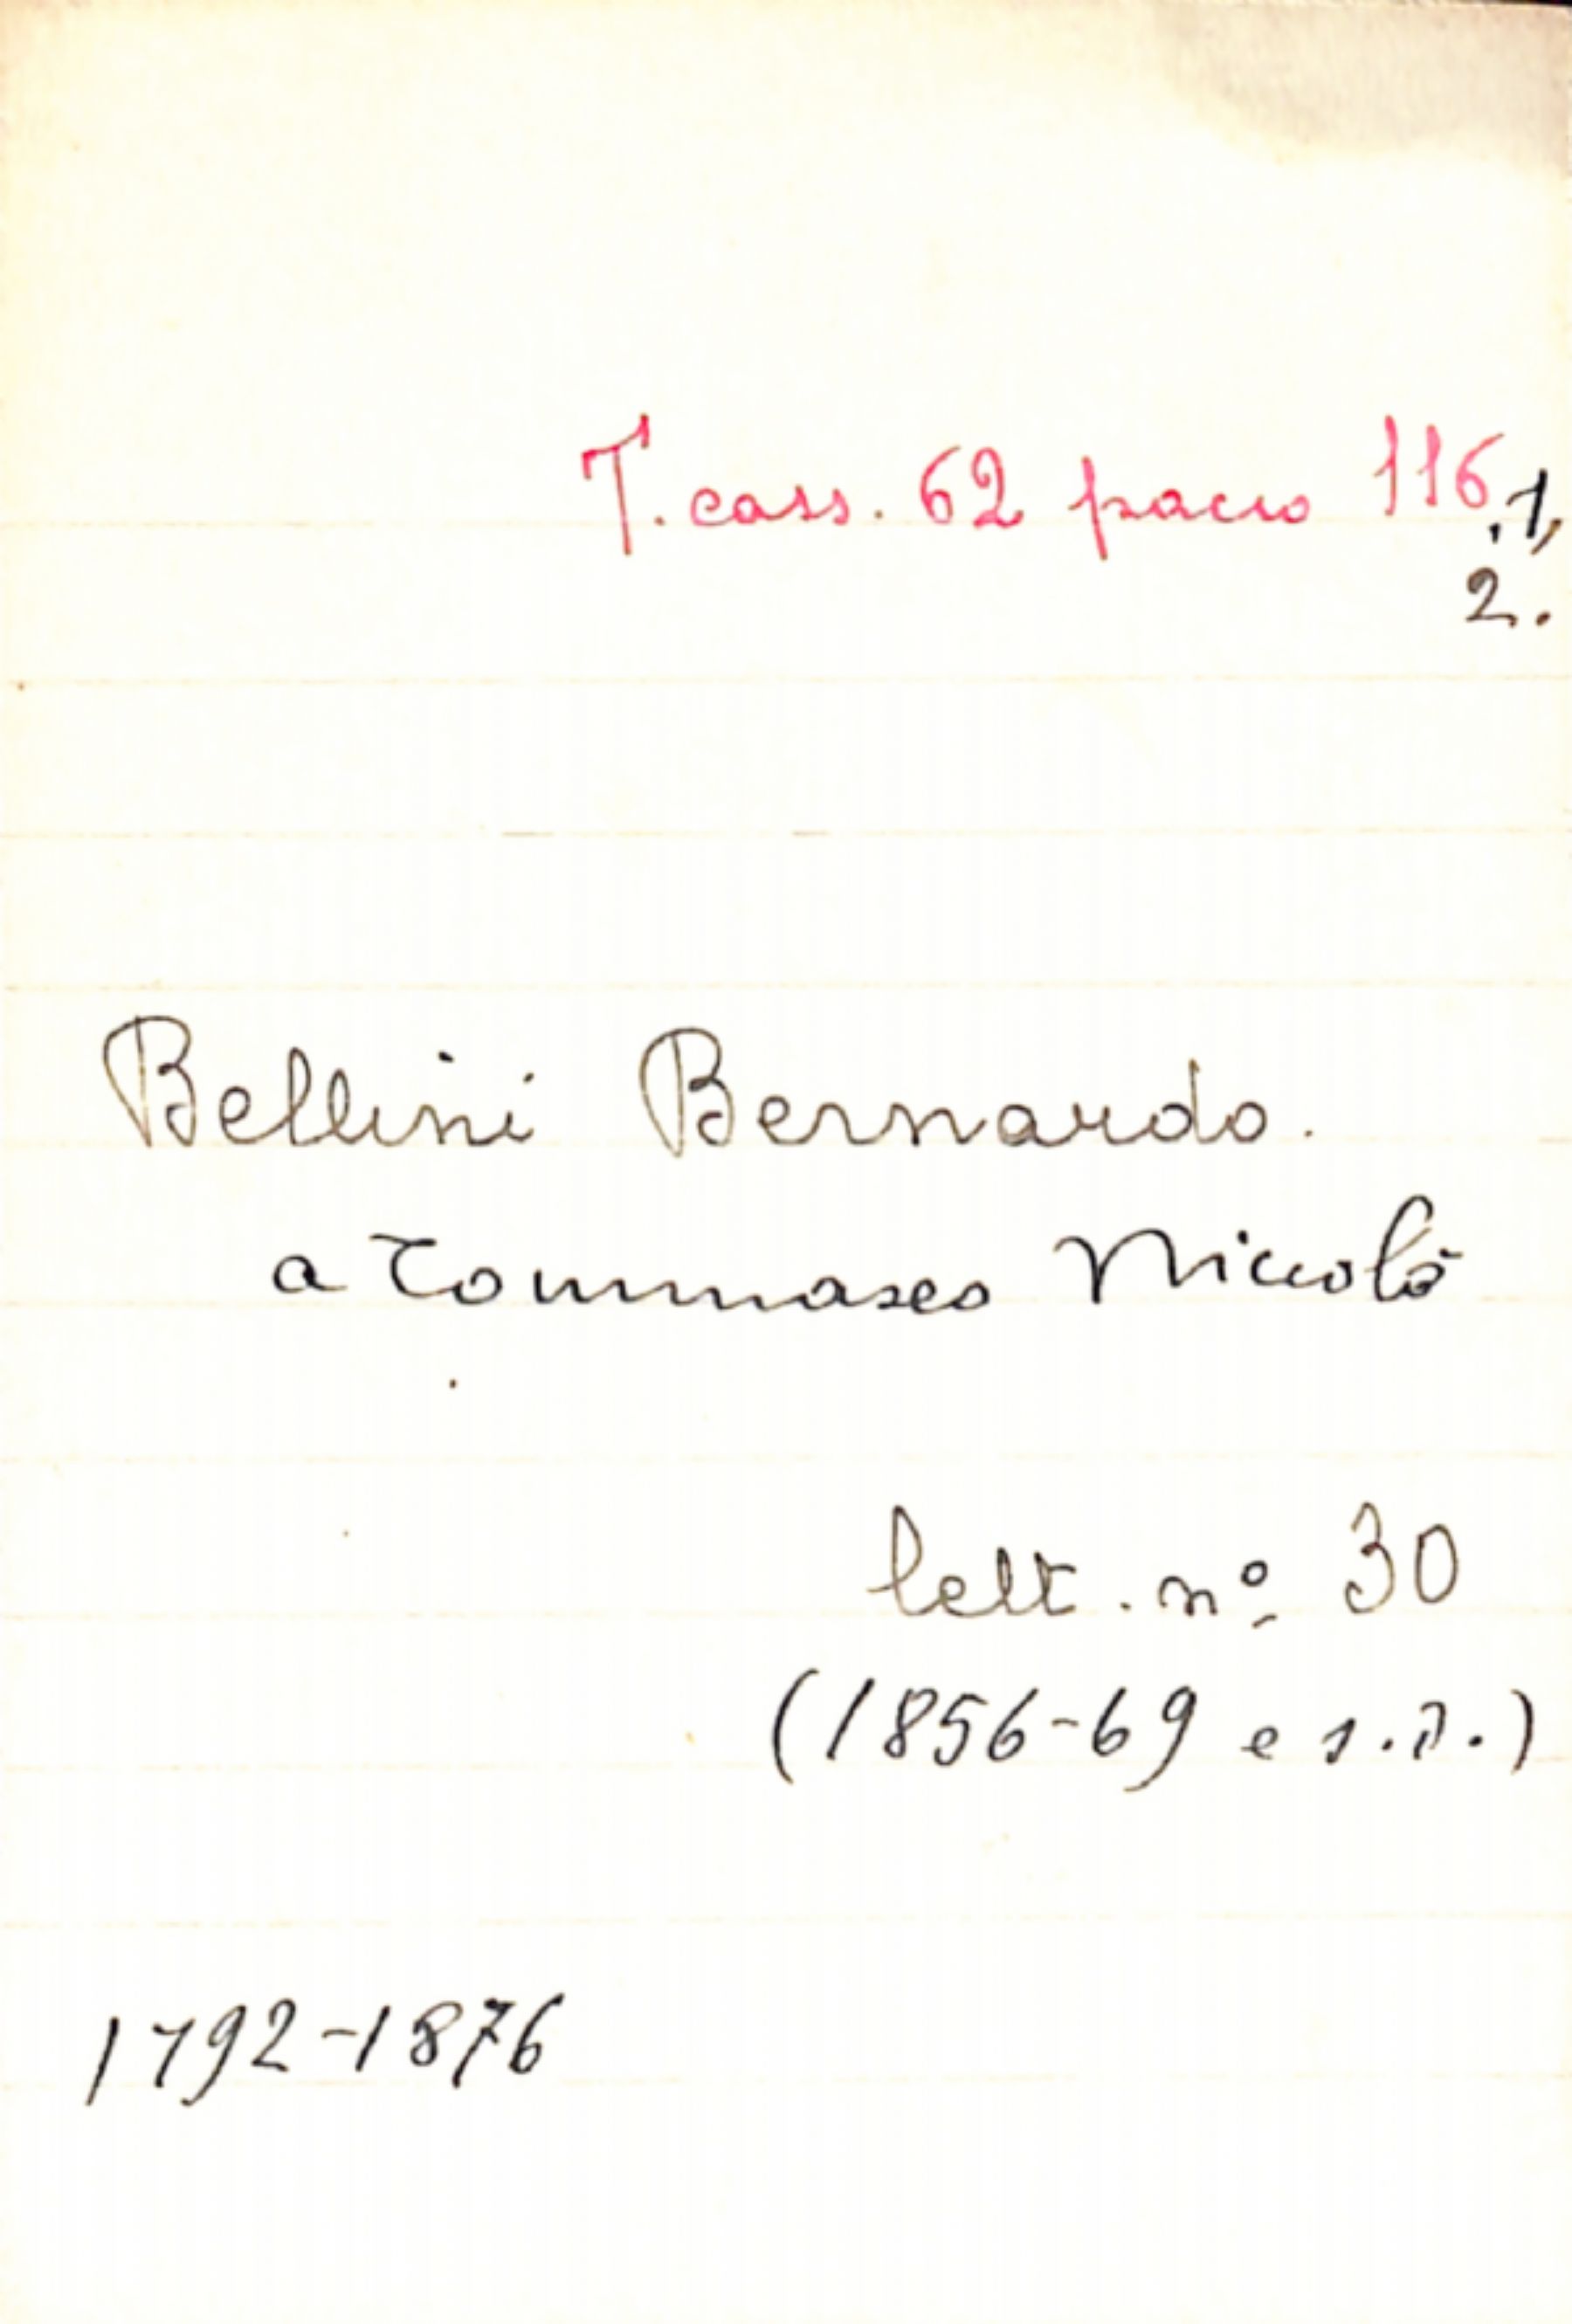 T. cass. 62 pacco 116.1,
2.
Bellini Bernardo.
a Tommaseo Niccolò
lett. nº 30
(1856-69 e s.d.)
1792-1876